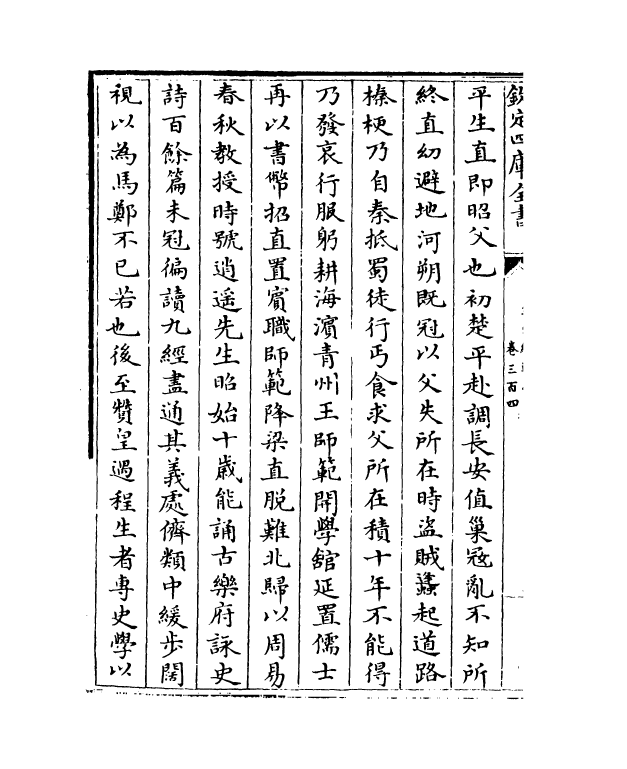 欽定四庫全書
卷三百四
平生直即昭父也初楚平赴調長安值巢冦亂不知所
終直幼避地河朔既冠以父失所在時盜賊蠭起道路
榛梗乃自秦抵蜀徒行丐食求父所在積十年不能得
乃發哀行服躬耕海濵青州王師範開學館延置儒士
再以書幣招直置賓職師範降梁直脱難北歸以周易
春秋教授時號逍遥先生昭始十歳能誦古樂府詠史
詩百餘篇未冠徧讀九經盡通其義處儕類中緩步闊
視以為馬鄭不已若也後至贊皇遇程生者專史學以